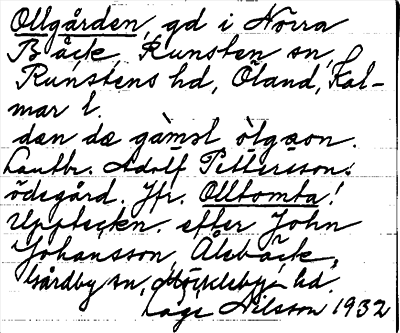 Ollgården, gd i Norra
Bäck, Runsten sn,
Runstens hd, Öland, Kal-
mar l.
dan dæ gamsl
Lantbr. Adolf Petterssons
ödegård. Jfr. Olltomta!
Uppteckn. efter John
Johansson, Ålebäck,
Gårdby sn, Möckleby hd.
Åge Nilsson 1932